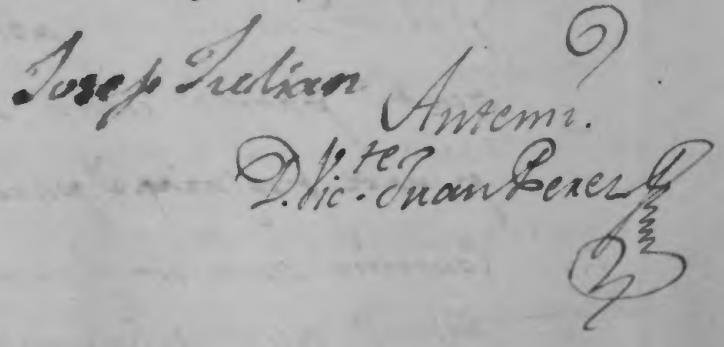 Josep Julian
Antemi.
D. Vic.te Juan Perez